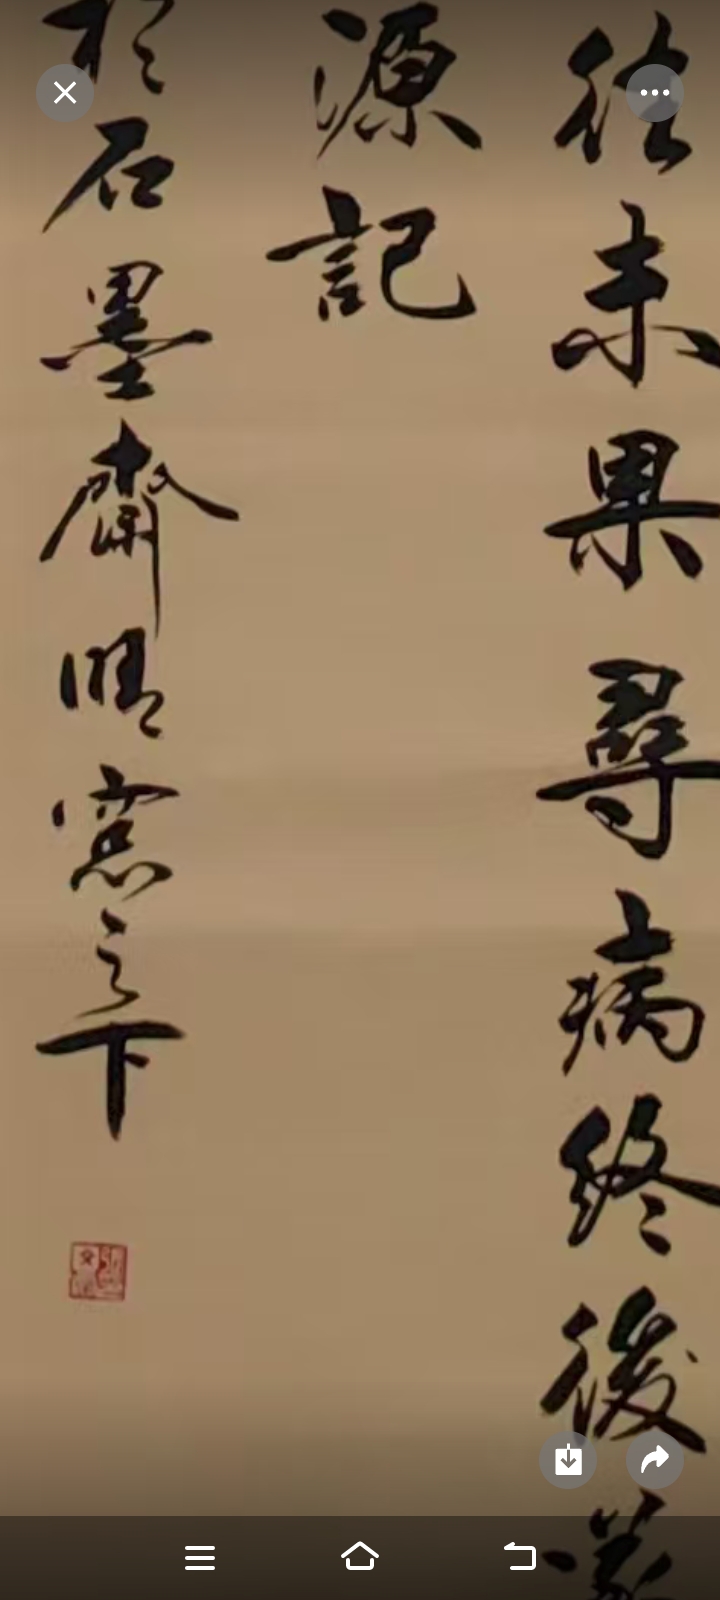 往未果尋病終後遂
源記
於石墨齋晴窓之下